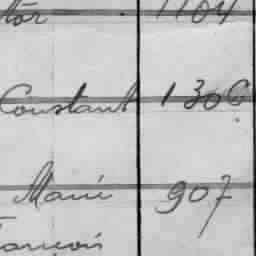 tor 1104
Constant 1306
Marie 907
ançois